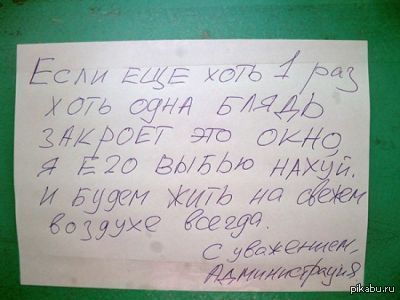 Если еще хоть 1 раз
хоть одна блядь
закроет это окно,
я его выбью нахуй.
и будем жить на свежем
воздухе всегда.
с уважением,
Администрация
pikabu.ru